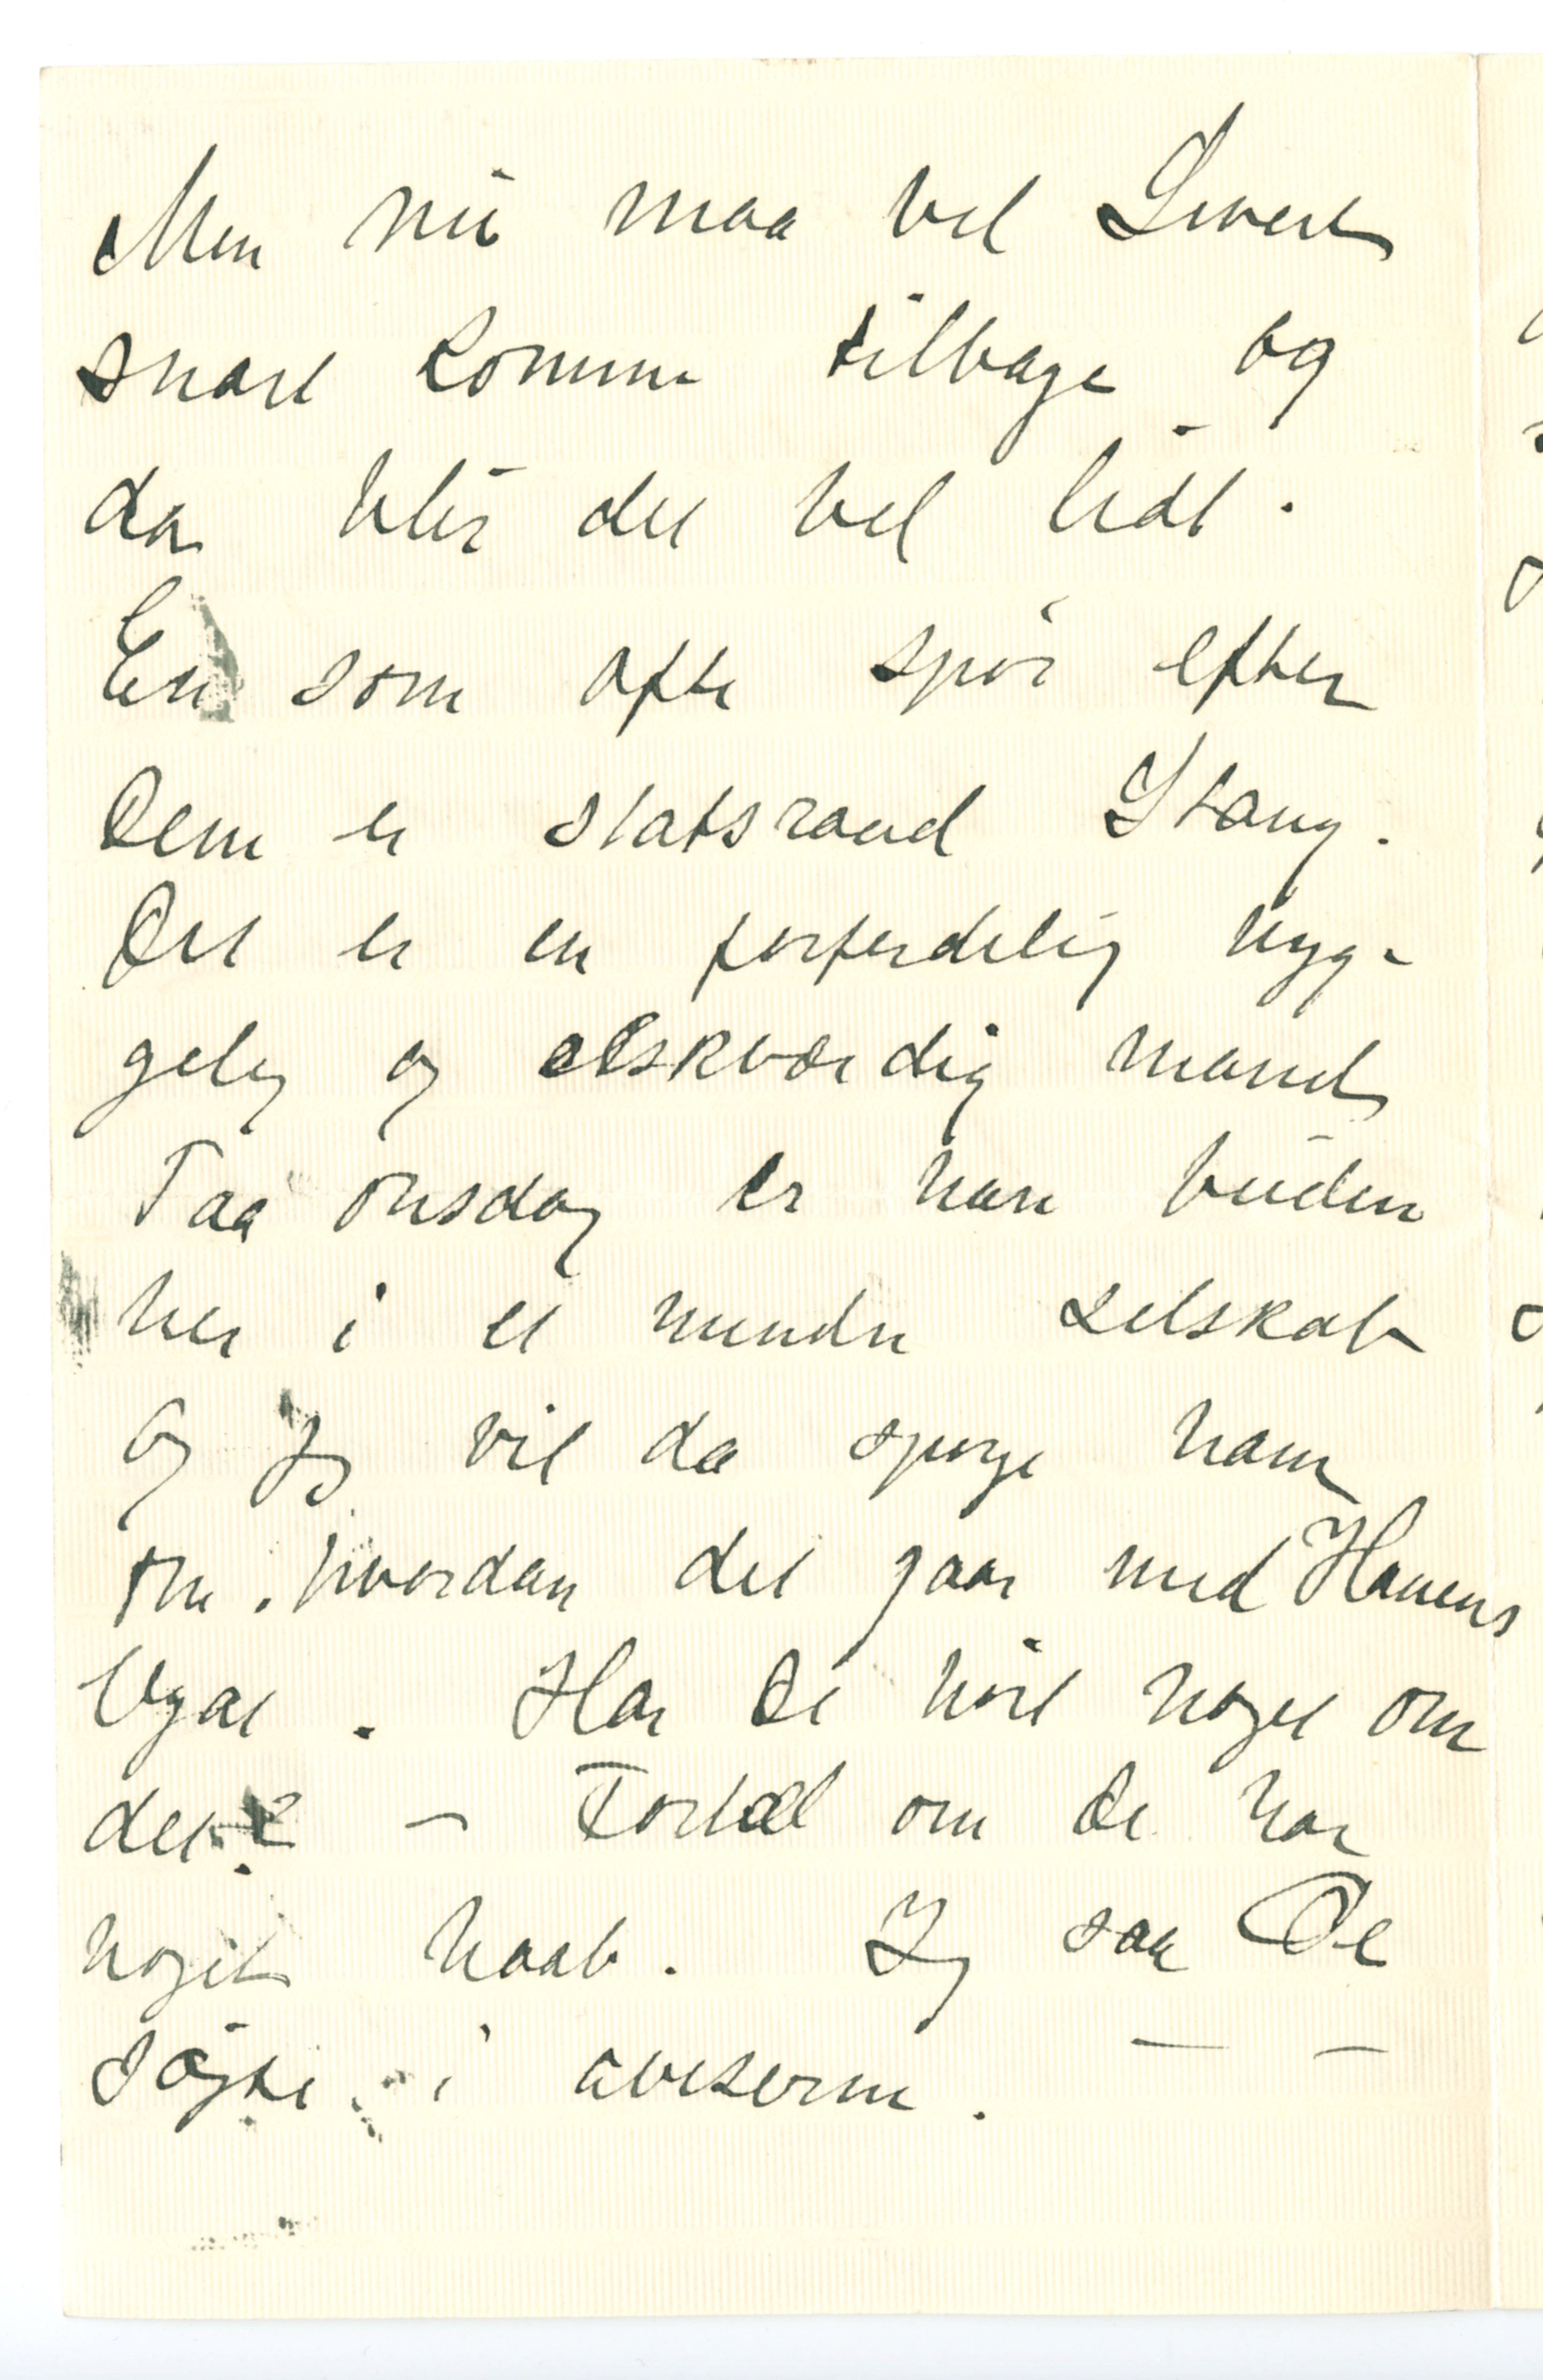 Men nu maa vel Sivert
snart komme tilbage og
da blir det vel lidt.
En som ofte spør efter
Dem er statsraad Stang.
Det er en forferdelig hyg-
gelig og elskværdig mand
Paa onsdag er han buden
her i et mindre selskab
og jeg vil da spørge ham
om hvordan det gaar med
. Har De hørt noget om
det? – Fortæl om De har
noget haab. Jeg saa De
søgte i aviserne. — —